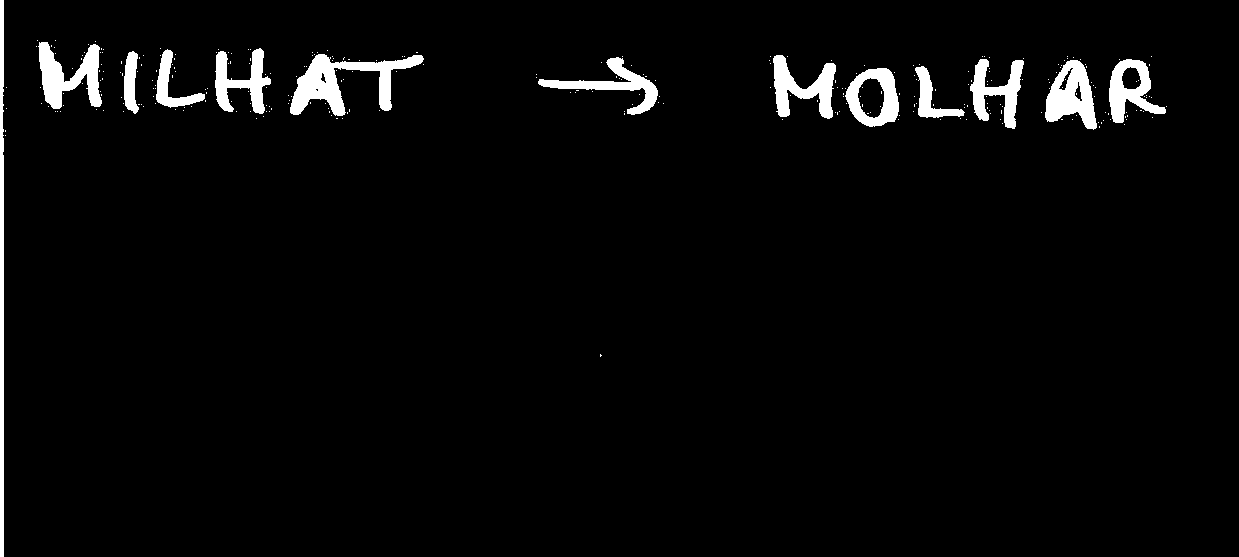 MILHAT → MOLHAR